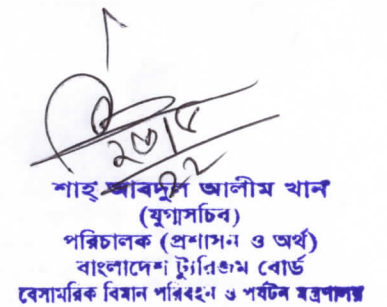 ২৩/৫
২২
শাহ্ আবদুল আলীম খান
(যুগ্মসচিব)
পরিচালক (প্রশাসন ও অর্থ)
বাংলাদেশ ট্যুরিজম বোর্ড
বেসামরিক বিমান পরিবহন ও পর্যটন মন্ত্রণালয়